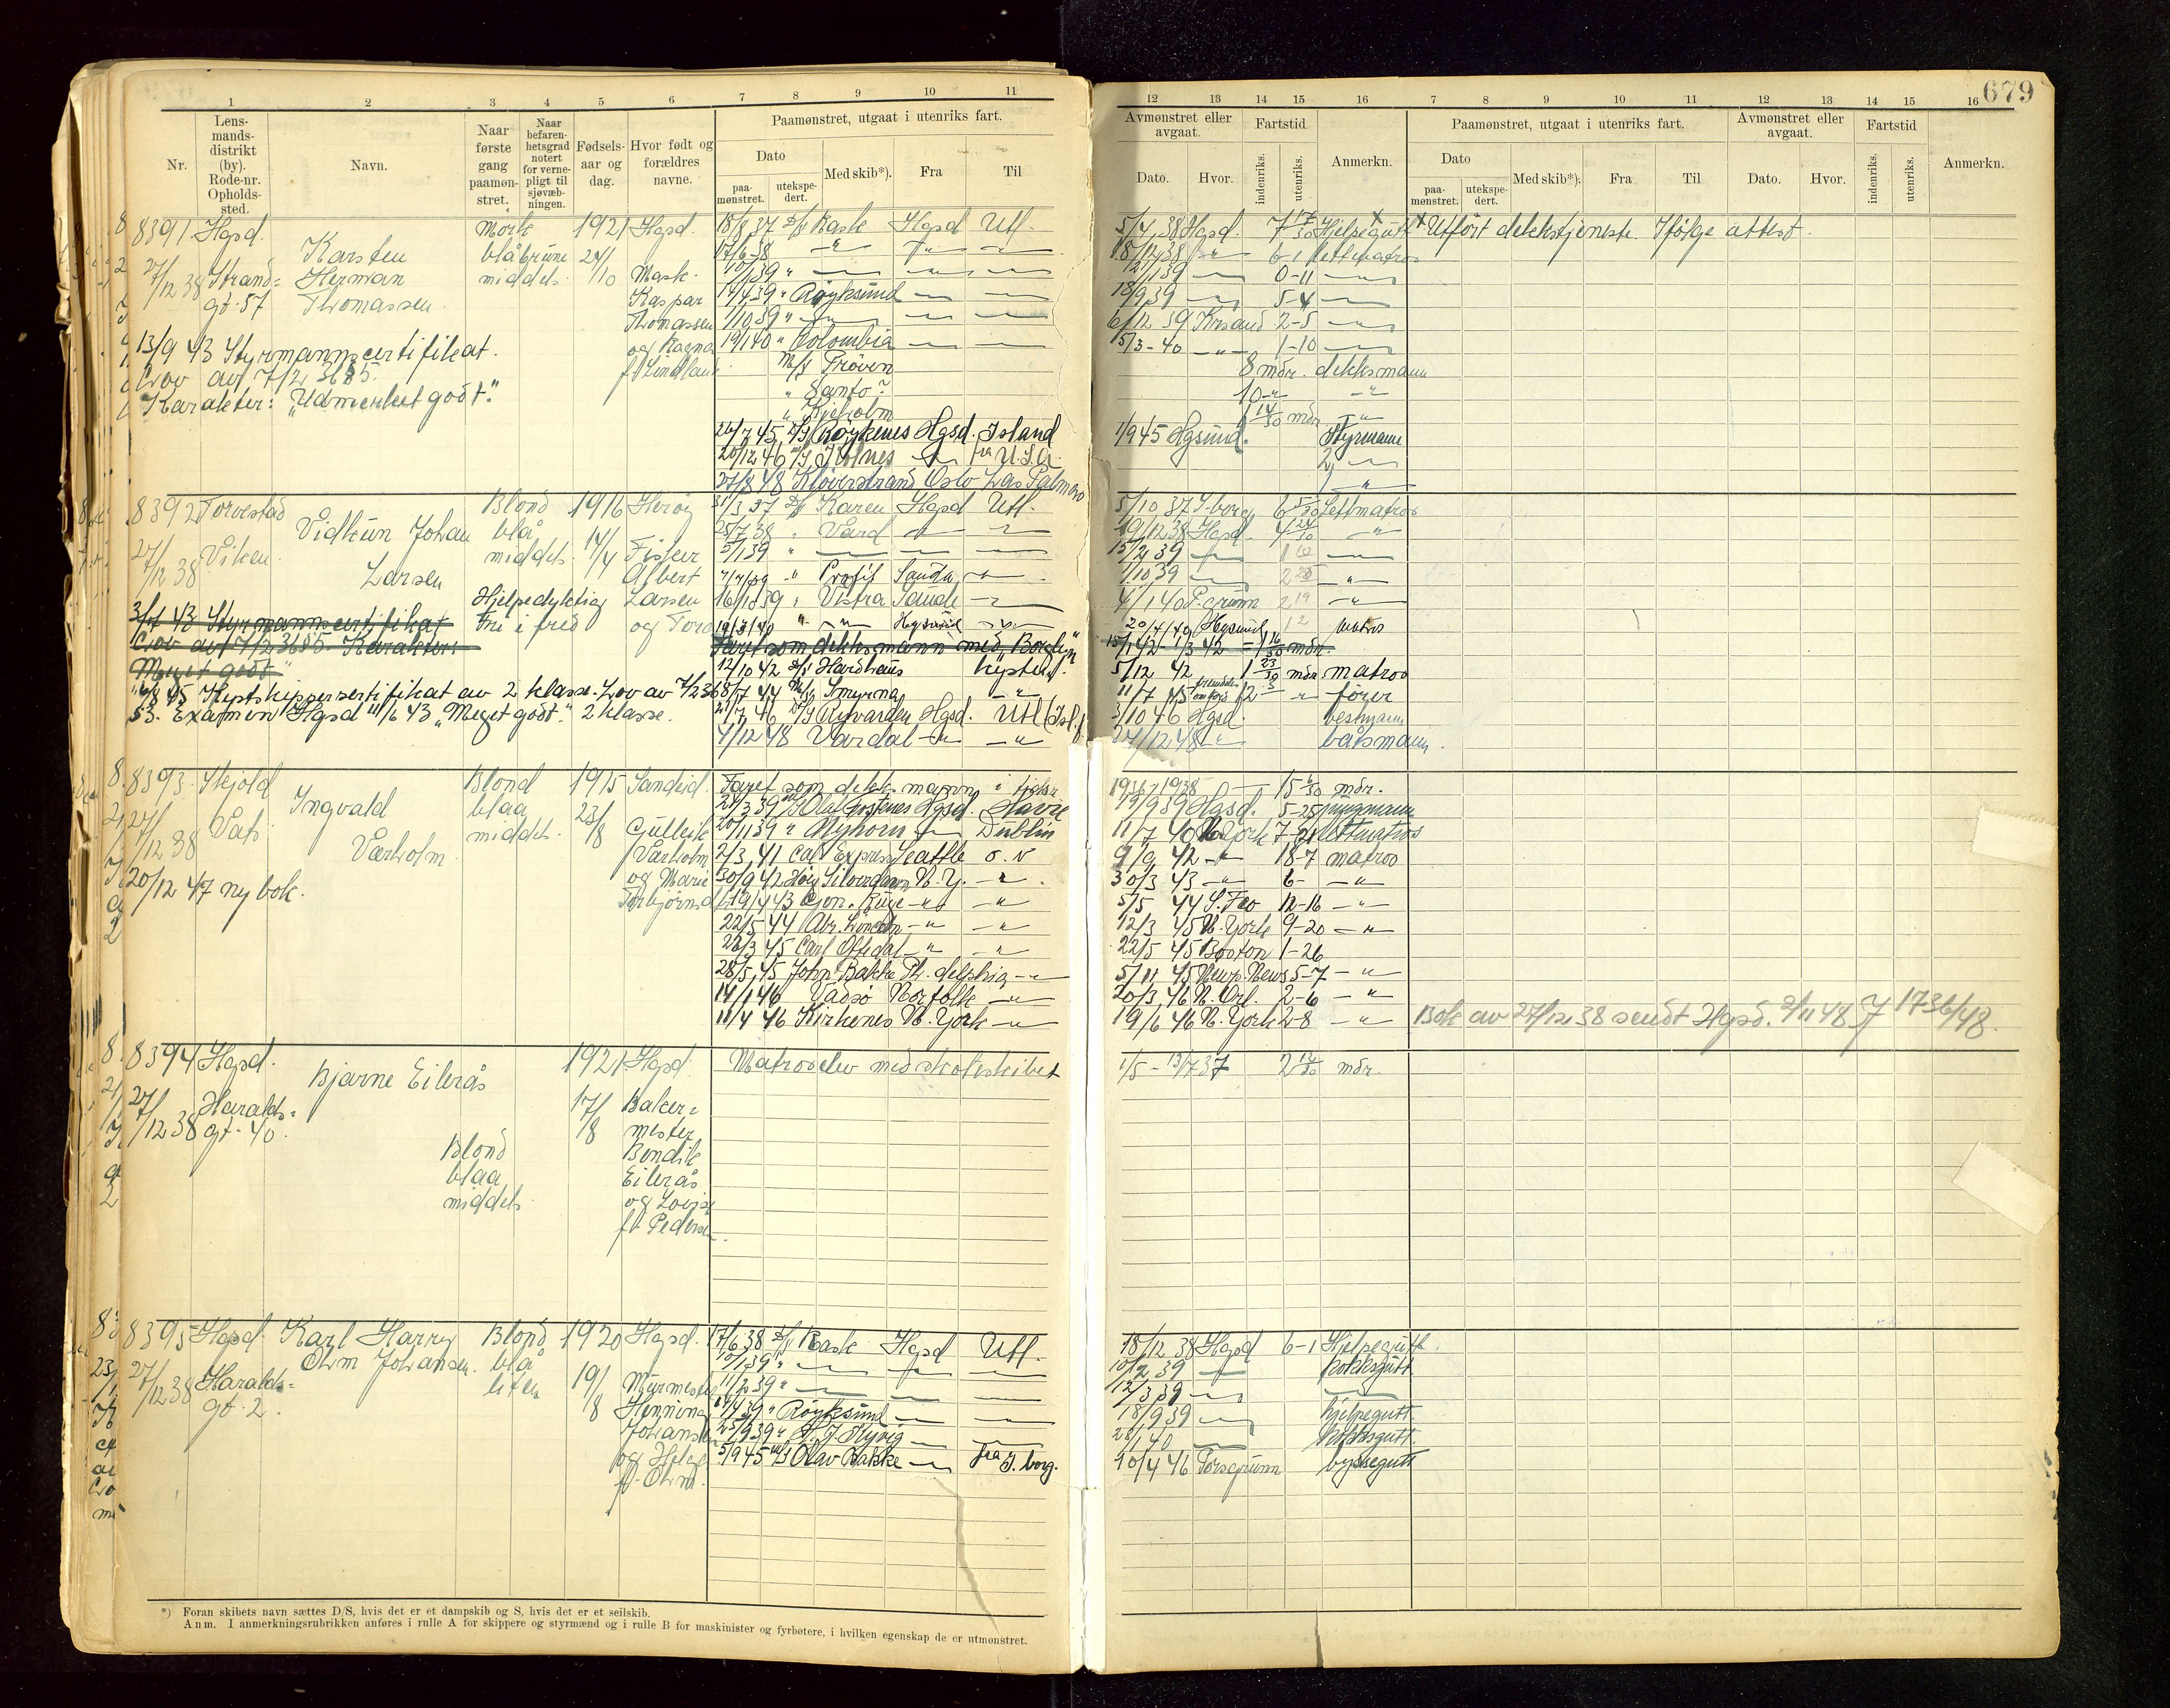 679
1 2 3 4 5 6 7 8 9 10 11
Nr.
Lens-
mands-
distrikt
(by).
Rode-nr.
Opholds-
sted.
Navn.
Naar
første
gang
paamøn-
stret.
Naar
befaren-
hetsgrad
notert
for verne-
pligt til
sjøvæb-
ningen.
Fødsels-
aar og
dag.
Hvor født og
forældres
navne.
Paamønstret, utgaat i utenriks fart.
Dato
paa-
mønstret.
utekspe-
dert.
Med skib*).
Fra
Til
12 13 14 15 16 7 8 9 10 11 12 13 14 15 16
Avmønstret eller
avgaat.
Dato.
Hvor.
Fartstid
indenriks.
utenriks.
Anmerkn.
Paamønstret, utgaat i utenriks fart.
Dato
paa-
mønstret.
utekspe-
dert.
Med skib*).
Fra
Til
Avmønstret eller
avgaat.
Dato.
Hvor.
Fartstid
indenriks.
utenriks.
Anmerkn.
8391 Hgsd.
27/12 38 Strand=
gt. 57
Karsten
Herman
Thomassen
Mørk
blå brune
middels
1921
24/10
Hgsd.
Mask.
Kaspar
Thomassen
og Ragna
13/9 43 Styrmannscertifikat.
Lov av 7/2 36 § 5.
Karakter: "Udmerket godt."
18/8 37 D/S Rask Hgsd Utl.
17/6 38 " " "
10/1 39 "
14/4 39 " Røyksund
1/10 39 "
19/1 40 " Colombia
M/S Prøven
" Santo ?
26/7 45 D/S Røykenes Hgsd. Island
20/12 46 fra U.S.A.
27/8 48 Kløverstrand Oslo Las Palmas
5/4 38 Hgsd. 7 17/30 Hjelpegutt x
x Utført dekkstjeneste. Ifølge attest.
18/12 38 6-1 lettmatros
12/1 39 0-11
18/9 39 5-4
6/12 39 Krsand 2-5
5/3-40 " 1-10
8 mdr. dekksmann
10 " "
1 14/30 mdr. "
1/9 45 Hgsund. Styrmann
2/
1/ "
8392 Torvestad
27/12 38 Viken.
Vidkun Johan
Larsen
Blond
blå
middels
1916
14/4
Herøy
Fisker
Albert
Larsen
og Tora
Hjelpedyktig
fri i fred
3/7 43 Styrmannscertifikat
Lov av 7/2 36 § 5. Karakter:
"Meget godt"
6/8 45 Kystskippersertifikat av 2 klasse. Lov av 7/2 36
§3. Examen Hgsd 11/6 43 "Meget godt." 2 klasse.
31/3 37 D/S Karen Hgsd Utl.
25/7 38 " Vard
5/1 39 "
7/7/39 " Profit Sauda "
16/10 39 " Vistra Sauda
19/3/40 " " Hgsund
Faret som dekksmann med "Borglyn"
12/10 42 D/S Hardhaus kystfart.
8/7 44 M/S Smyrna "
27/7 46 D/S Ryvarden Hgsd. Utl (Isl.)
4/12 48 Vardal " "
5/10 37 S.borg 6 5/30 Lettmatros
19/12 38 Hgsd. 4 24/30 "
15/2 39
1/10 39 "
4/1 40 P.grunn 2 19 "
20/4/40 Hgsund matros
15/1 42 - 1/3 42 = 1 16/30 mdr.
5/12 42 1 23/30 mdr. matros
11/7 45 " fører
3/10 46 Hgsd. bestmann
27/12 48 " båtsmann.
8393 Skjold
27/12 38 Vats
Ingvald
Vårholm
Blond
blaa
middels
1915
23/8
Sandeid.
Gulleik
Vårholm
og Marie
20/12 47 ny bok.
Faret som dekksmann i
21/3 39 M/S Olaf Fostenes Hgsd. Havre
20/11 39 " Nyhorn Dublin
2/3 41 Cal. Express Seattle o. v
30/9 42 Høegh Silverdawn N. Y. "
19/4 43 Gen. Ruge " "
22/5 44 Abr. Lincoln " "
23/3 45 Carl Oftedal " "
28/5 45 John Bakke Ph. delphia "
14/1 46 Vadsø Norfolk "
11/4 46 Kirkenes N. York "
1936 - 1938 15 6/30 mdr.
19/9 39 Hgsd. 5-25 jungmann
11/7 40 N. York 7-21 lettmatros
9/9 42 " 18-7 matros
30/3 43 " 6- "
5/5 44 S. Fco 12-16 "
12/3 45 N. York 9-20 "
22/5 45 Boston 1-26
5/11 45 Newp. News 5-7 "
20/3 46 N. Orl. 2-6 "
19/6 46 N. York 2-8 "
Bok av 27/12 38 sendt Hgsd. 2/11 48 J 1736/48.
8394 Hgsd.
27/12 38 Haralds=
gt. 40.
Bjarne Eilerås
Blond
blaa
middels
1921
17/8
Hgsd
Baker=
mester
Bendik
Eilerås
og Lovise
f. Pedersen.
Matroselev med skoleskibet
1/5 - 13/7 37 2 13/30 mdr.
8395 Hgsd.
27/12 38 Haralds=
gt. 2.
Karl Harry
Ohm Johansen.
Blond
blå
liten
1920
19/8
Hgsd.
Murmester
Henning
Johansen
og Helga
f. Ohm.
17/6 38 D/S Rask Hgsd Utl.
10/1 39 "
11/2 39 "
14/4 39 " Røyksund
25/9 39 " Kyvig
5/9 45 M/S Olav Bakke fra S. borg.
18/12 38 Hgsd 6-1 Hjelpegutt.
10/2 39 kokksgutt
12/3 39
18/9 39 hjelpegutt.
28/1 40 kokksgutt.
10/4 46 Porsgrunn byssegutt
*) Foran skibets navn sættes D/S, hvis det er et dampskib og S, hvis det er et seilskib.
Anm. I anmerkningsrubrikken anføres i rulle A for skippere og styrmænd og i rulle B for maskinister og fyrbøtere, i hvilken egenskap de er utmønstret.